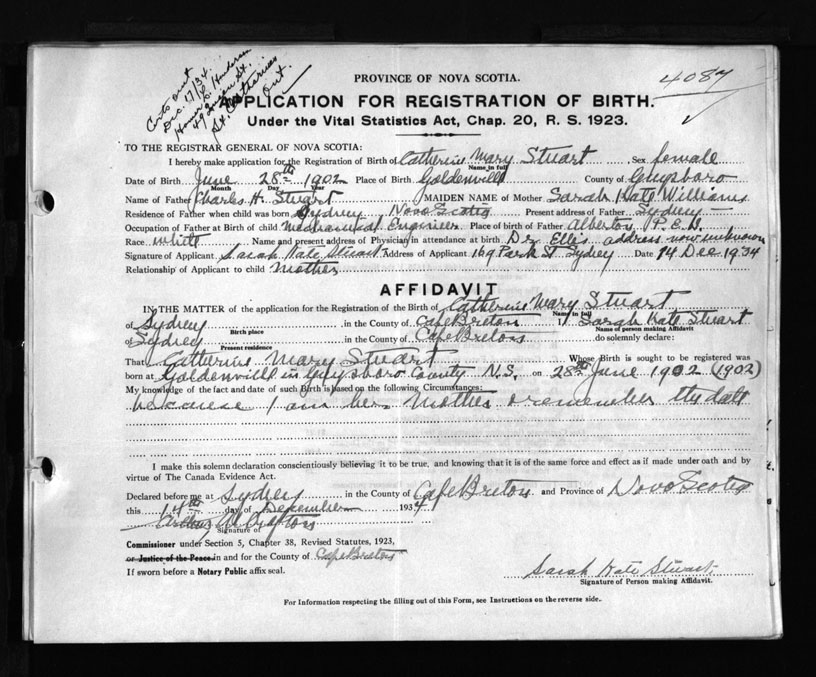 Certs out
Dec. 17/34
Homer S. Henderson
49 Queen St.
St. Catharines
Ont.
4087
PROVINCE OF NOVA SCOTIA.
APPLICATION FOR REGISTRATION OF BIRTH.
Under the Vital Statistics Act, Chap. 20, R. S. 1923.
TO THE REGISTRAR GENERAL OF NOVA SCOTIA:
I hereby make application for the Registration of Birth of Catherine Mary Stuart Sex female
Name in full
Date of Birth June 28th 1902 Place of Birth Goldenville County of Guysboro
Month Day Year
Name of Father Charles H. Stuart MAIDEN NAME of Mother Sarah Kate Williams
Residence of Father when child was born Sydney Nova Scotia Present address of Father Sydney
Occupation of Father at Birth of child Mechanical Engineer Place of birth of Father Alberton P.E.I.
Race white Name and present address of Physician in attendance at birth Dr Ellis address now unknown
Signature of Applicant Sarah Kate Stuart Address of Applicant 169 Park St Sydney Date 14 Dec 1934
Relationship of Applicant to child Mother
AFFIDAVIT
IN THE MATTER of the application for the Registration of the Birth of Catherine Mary Stuart
Name in full
of Sydney in the County of Cape Breton I Sarah Kate Stuart
Birth place Name of person making Affidavit
of Sydney in the County of Cape Breton do solemnly declare:
Present residence
That Catherine Mary Stuart Whose Birth is sought to be registered was
born at Goldenville in Guysboro County N.S. on 28th June 1902 (1902)
My knowledge of the fact and date of such Birth is based on the following Circumstances:
because I am her Mother & remember the date
I make this solemn declaration conscientiously believing it to be true, and knowing that it is of the same force and effect as if made under oath and by
virtue of The Canada Evidence Act.
Declared before me at Sydney in the County of Cape Breton and Province of Nova Scotia
this 14th day of December 1934
Signature of
Commissioner under Section 5, Chapter 38, Revised Statutes, 1923,
or Justice of the Peace in and for the County of Cape Breton
If sworn before a Notary Public affix seal.
Sarah Kate Stuart
Signature of Person making Affidavit.
For Information respecting the filling out of this Form, see Instructions on the reverse side.